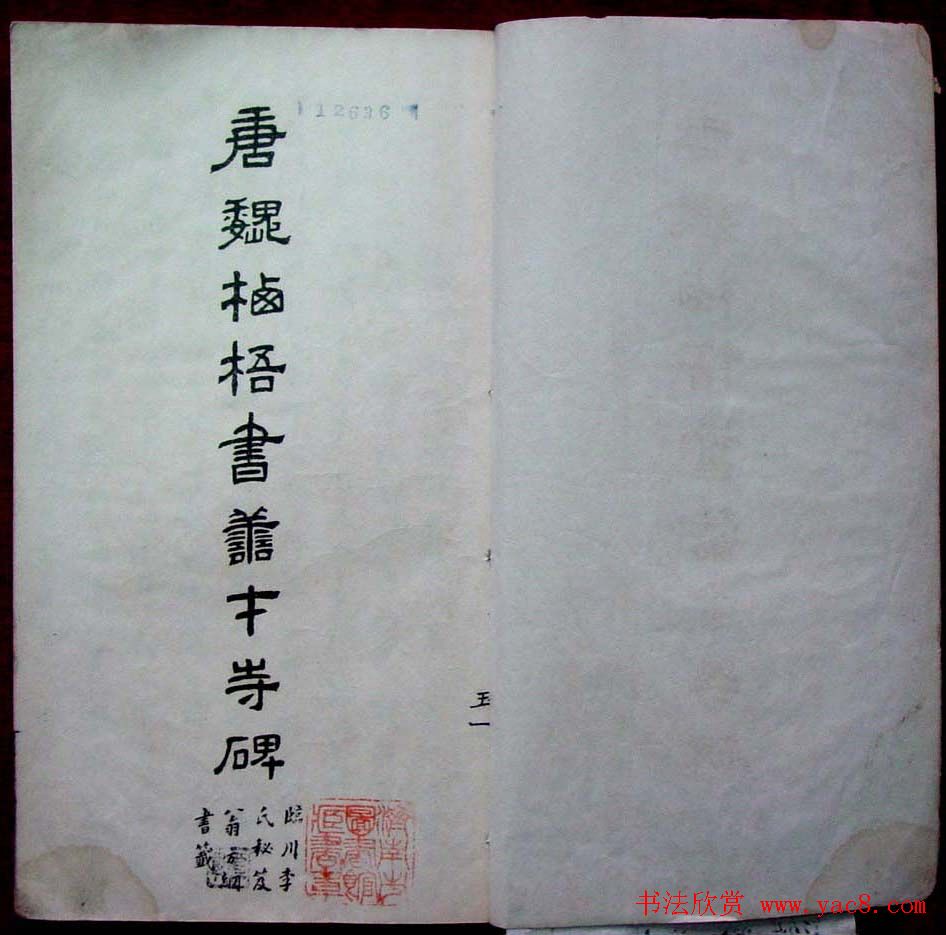 12636
唐魏栖梧書善才寺碑
臨川李
氏秘笈
翁方綱
書籤
濟南市
圖書館
藏書章
五一
书法欣赏 www.yac8.com